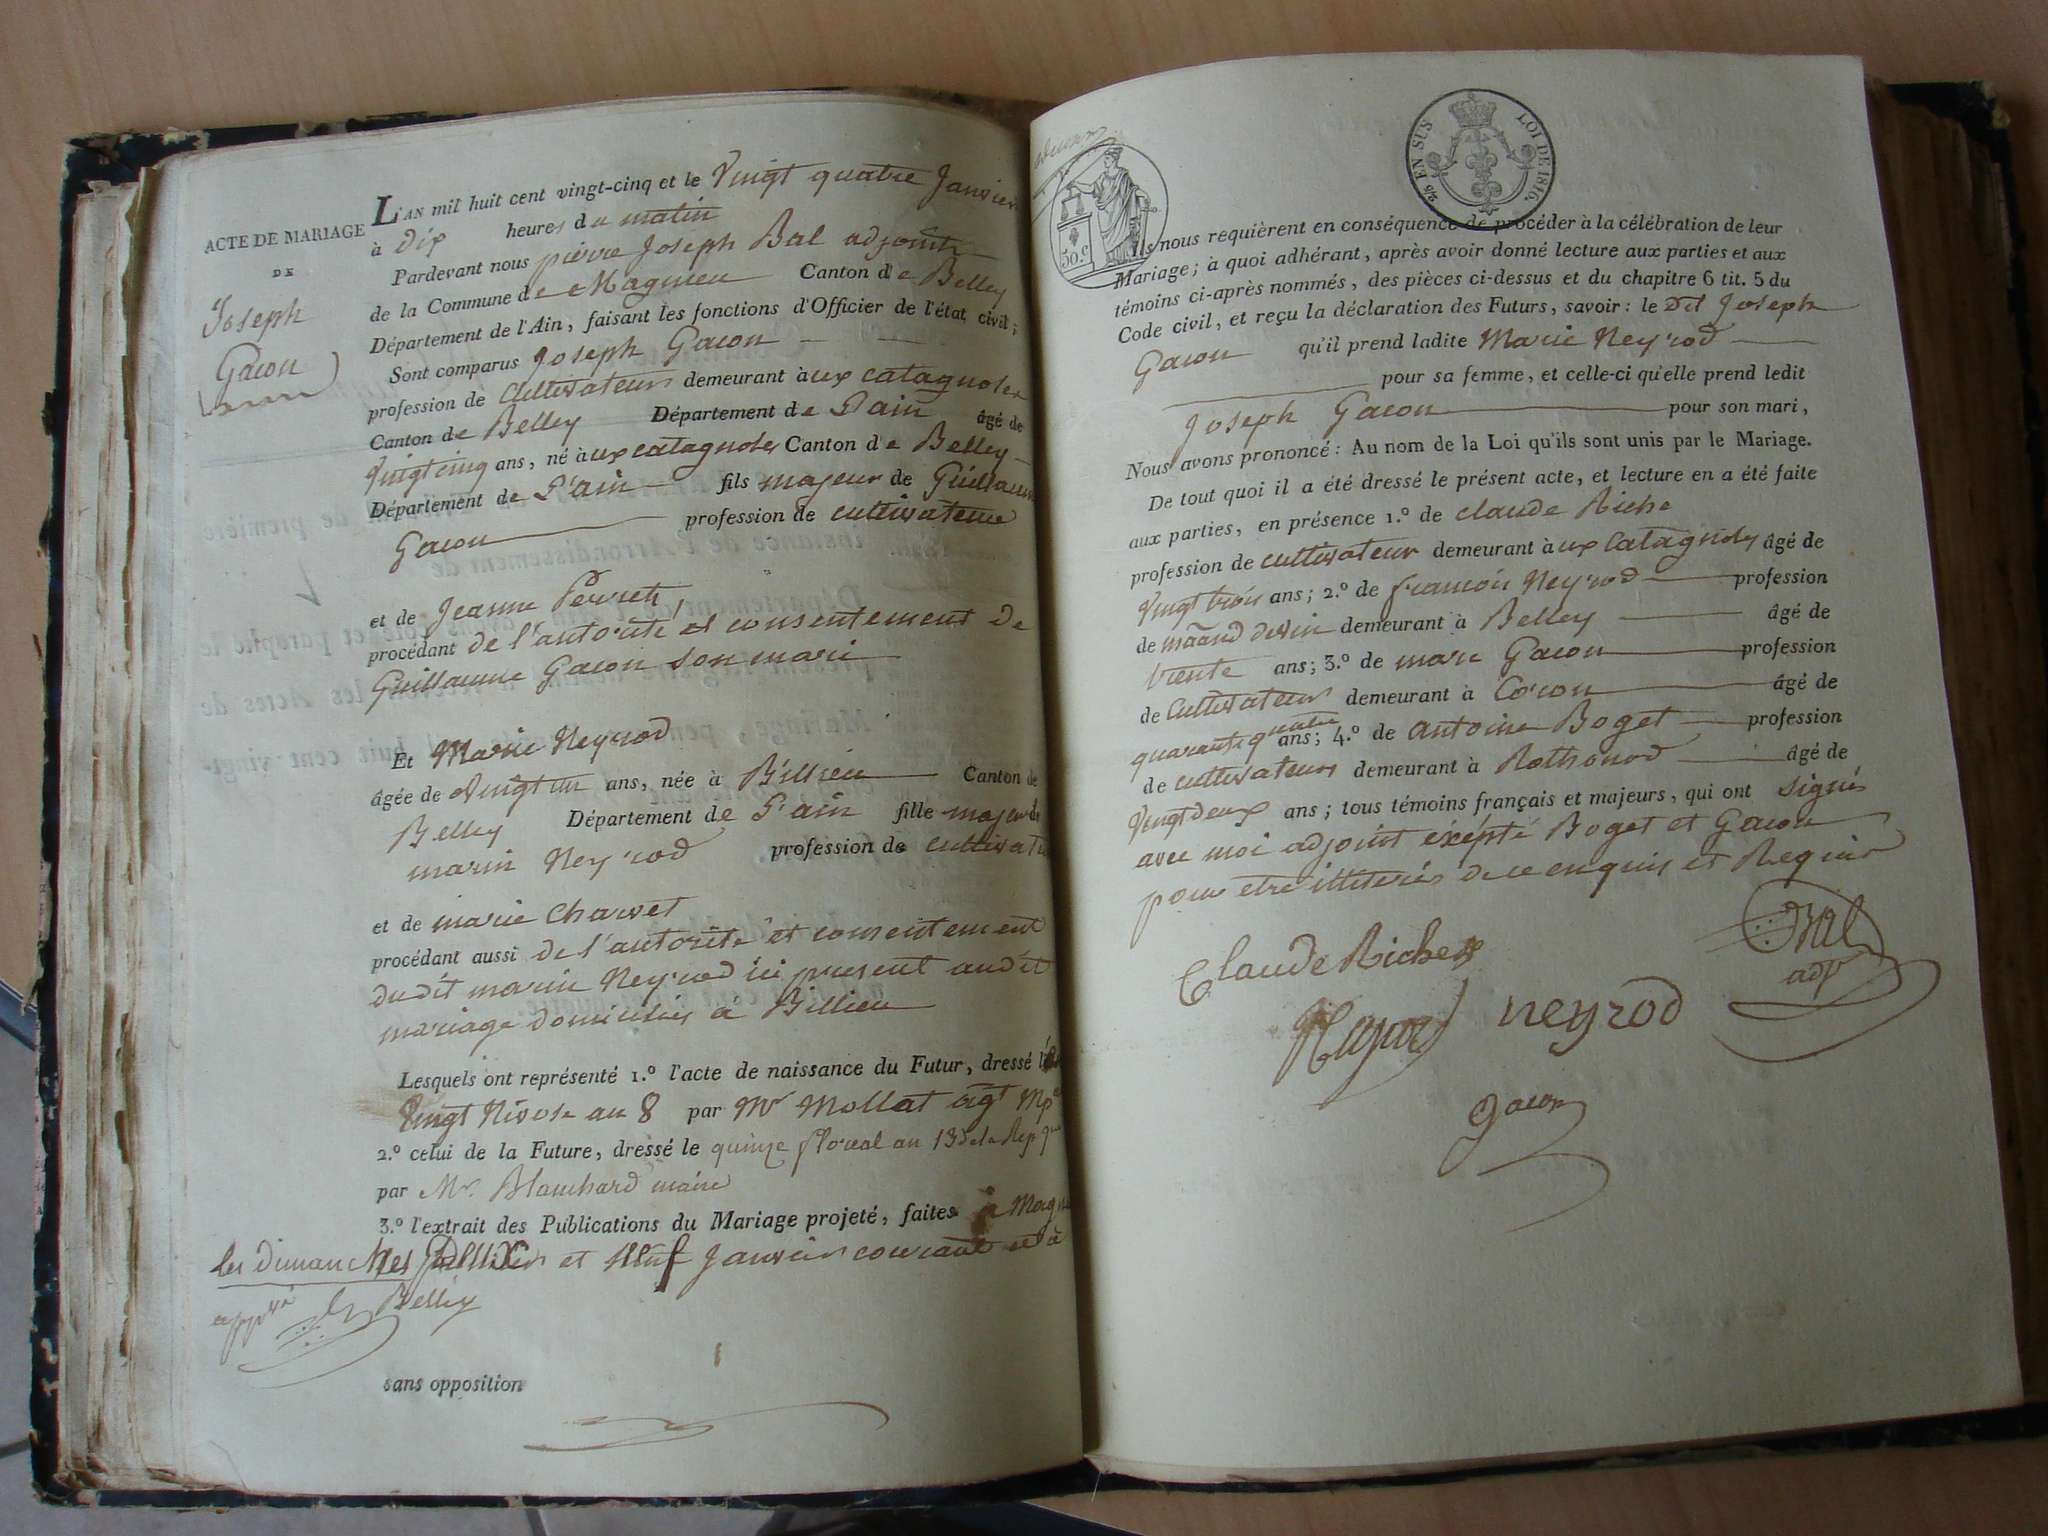 ACTE DE MARIAGE
DE
Joseph
Gacon
L'AN mil huit cent vingt-cinq et le Vingt quatre Janvier
à dix heures du matin
Pardevant nous pierre Joseph Bal adjoint
de la Commune de Magnieu Canton de Belley
Département de l'Ain, faisant les fonctions d'Officier de l'état civil;
Sont comparus Joseph Gacon
profession de Cultivateur demeurant àux catagnoles
Canton de Belley Département de L'ain âgé de
Vingt cinq ans, né àux catagnoles Canton de Belley
Département de L'ain fils majeur de Guillaume
Gacon profession de cultivateur
et de Jeanne Perret,
procédant de l'autorité et consentement de
Guillaume Gacon son mari
Et Marie Neyrod
âgée de Vingt un ans, née à Billieu Canton de
Belley Département de L'ain fille majeur de
marin Neyrod profession de cultivat
et de marie Charvet
procédant aussi de l'autorité et consentement
dudit marin Neyrod ici present audit
mariage domiciliés à Billieu
Lesquels ont représenté 1.º l'acte de naissance du Futur, dressé le
Vingt Nivose an 8 par Mr Mollat agt Mpal
2.º celui de la Future, dressé le quinze floreal an 13 de la Rep que
par Mr. Blanchard maire
3.º l'extrait des Publications du Mariage projeté, faites à Magn
les dimanches et Neuf Janvier courant et à
Belley
sans opposition
2/5 EN SUS LOI DE 1816.
50.c
Ils nous requièrent en conséquence de procéder à la célébration de leur
Mariage; à quoi adhérant, après avoir donné lecture aux parties et aux
témoins ci-après nommés, des pièces ci-dessus et du chapitre 6 tit. 5 du
Code civil, et reçu la déclaration des Futurs, savoir: le dit Joseph
Gacon qu'il prend ladite Marie Neyrod
pour sa femme, et celle-ci qu'elle prend ledit
Joseph Gacon pour son mari,
Nous avons prononcé: Au nom de la Loi qu'ils sont unis par le Mariage.
De tout quoi il a été dressé le présent acte, et lecture en a été faite
aux parties, en présence 1.º de claude Riche
profession de cultivateur demeurant àux catagnoles âgé de
Vingt trois ans; 2.º de françois Neyrod profession
de demeurant à Belley âgé de
trente ans; 3.º de marc Gacon profession
de Cultivateur demeurant à Coron âgé de
quarante quatre ans; 4.º de antoine Boget profession
de cultivateur demeurant à Rothonod âgé de
Vingt deux ans; tous témoins français et majeurs, qui ont signés
avec moi adjoint éxépté Boget et Gacon
pour etre illiterés de ce enquis et Requis
Claude Riche
Bal
adjt
neyrod
gacon